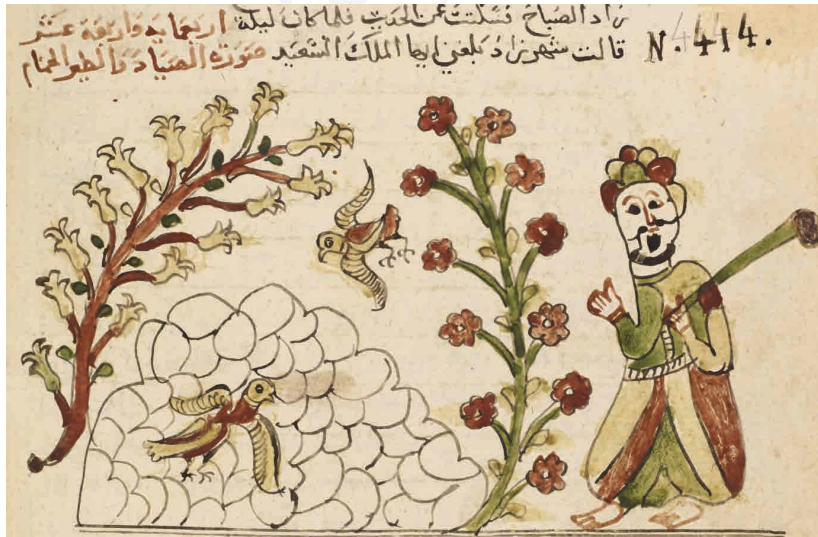 زاد الصباح فسكتت عن الحديث فلما كان ليلة اربعمايه واربعة عشر
قالت شهرزاد بلغني ايها الملك السعيد صورة الصياد والطير الحمام
N. 414.